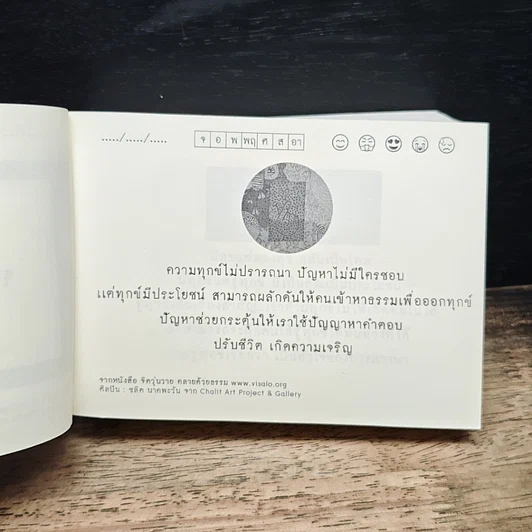 ...../...../.....
จ อ พ พฤ ศ ส อา
ความทุกข์ไม่ปรารถนา ปัญหาไม่มีใครชอบ
แต่ทุกข์มีประโยชน์ สามารถผลักดันให้คนเข้าหาธรรมเพื่อออกทุกข์
ปัญหาช่วยกระตุ้นให้เราใช้ปัญญาหาคำตอบ
ปรับชีวิต เกิดความเจริญ
จากหนังสือ จิตวุ่นวาย คลายด้วยธรรม www.visalo.org
ศิลปิน : ชลิต นาคพะวัน จาก Chalit Art Project & Gallery